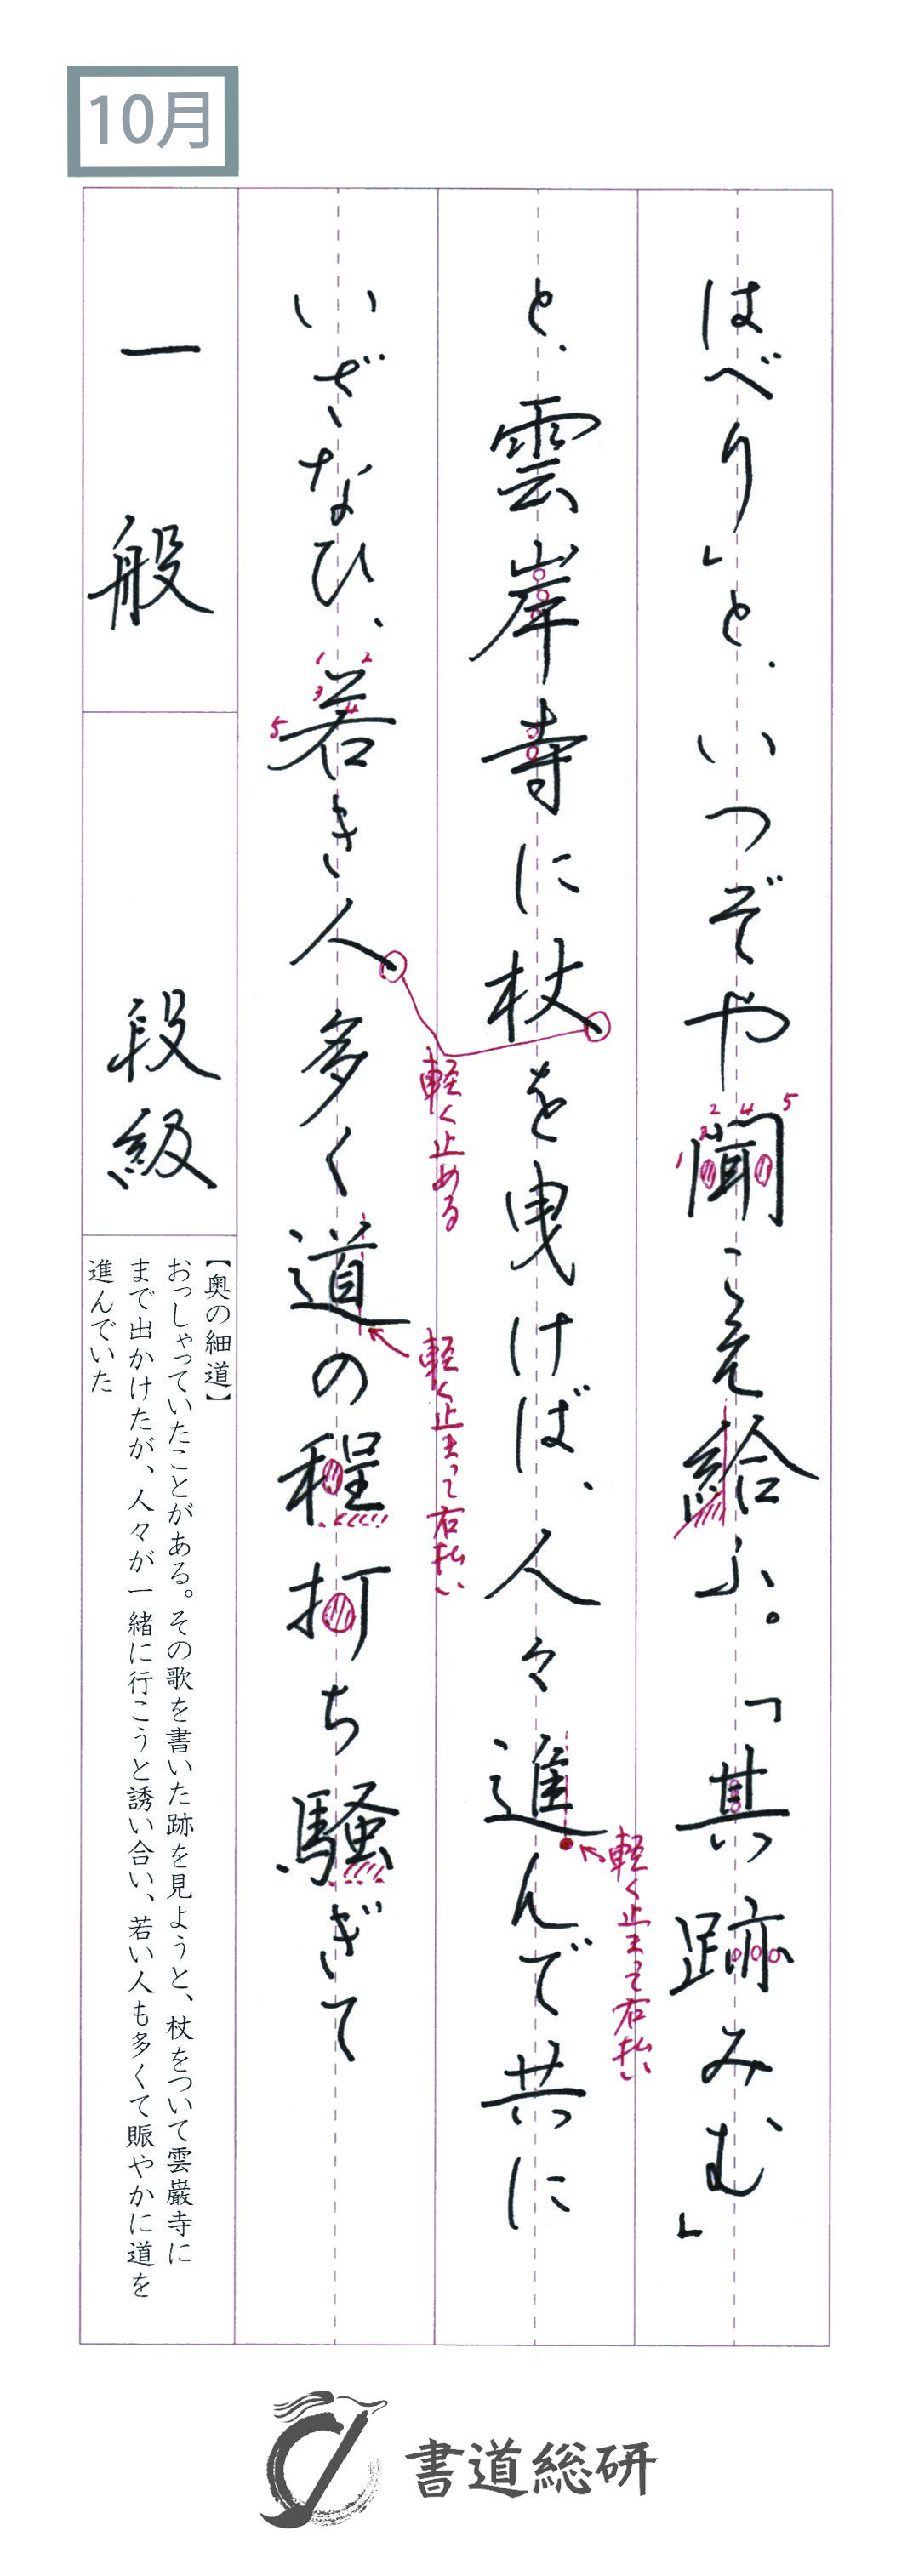 10月
はべり」と、いつぞや聞こえ給ふ。「其跡みむ」
と、雲岸寺に杖を曳けば、人々進んで共に
いざなひ、若き人多く道の程打ち騒ぎて
軽く止める
軽く止まって右払い
軽く止まって右払い
1 2 3 4 5
1 2 3 4 5
一般
段級
【奥の細道】
おっしゃっていたことがある。その歌を書いた跡を見ようと、杖をついて雲巌寺に
まで出かけたが、人々が一緒に行こうと誘い合い、若い人も多くて賑やかに道を
進んでいた
書道総研